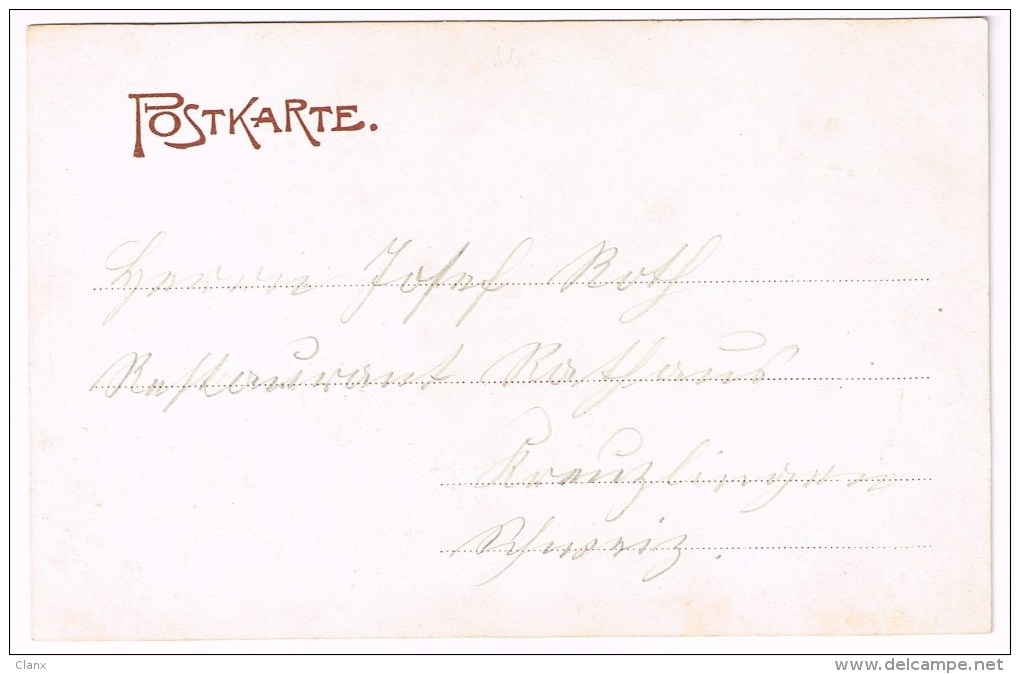 POSTKARTE.
Herrn Josef Roth
Restaurant Rathaus
Kreuzlingen
Schweiz.
Clanx
www.delcampe.net